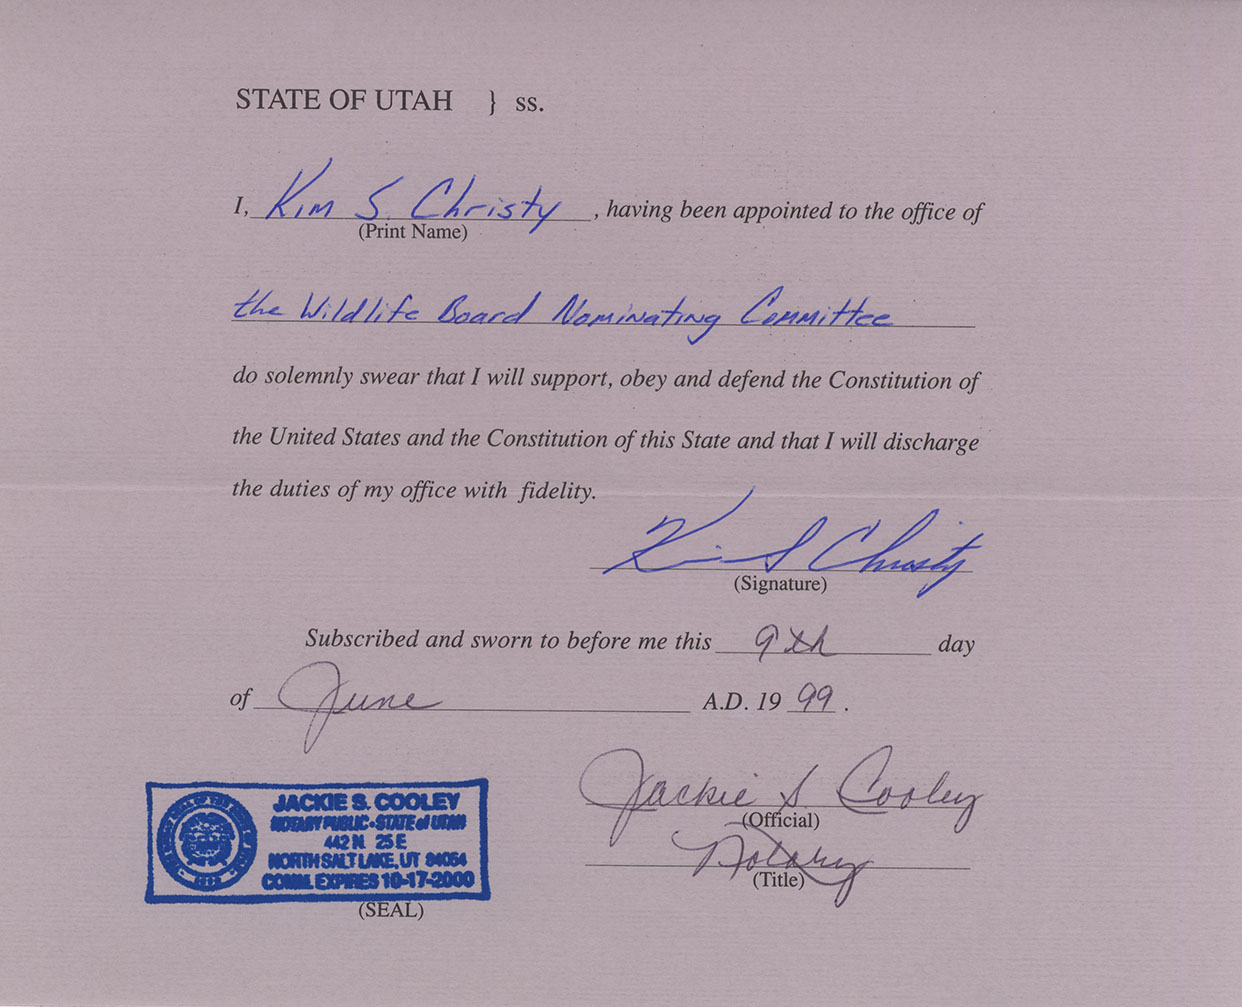 STATE OF UTAH } ss.
I, Kim S. Christy, having been appointed to the office of
(Print Name)
the Wildlife Board Nominating Committee
do solemnly swear that I will support, obey and defend the Constitution of
the United States and the Constitution of this State and that I will discharge
the duties of my office with fidelity.
Kim S Christy
(Signature)
Subscribed and sworn to before me this 9th day
of June A.D. 19 99.
Jackie S. Cooley
(Official)
Notary
(Title)
JACKIE S. COOLEY
NOTARY PUBLIC • STATE of UTAH
442 N 25 E
NORTH SALT LAKE, UT 84054
COMM. EXPIRES 10-17-2000
(SEAL)